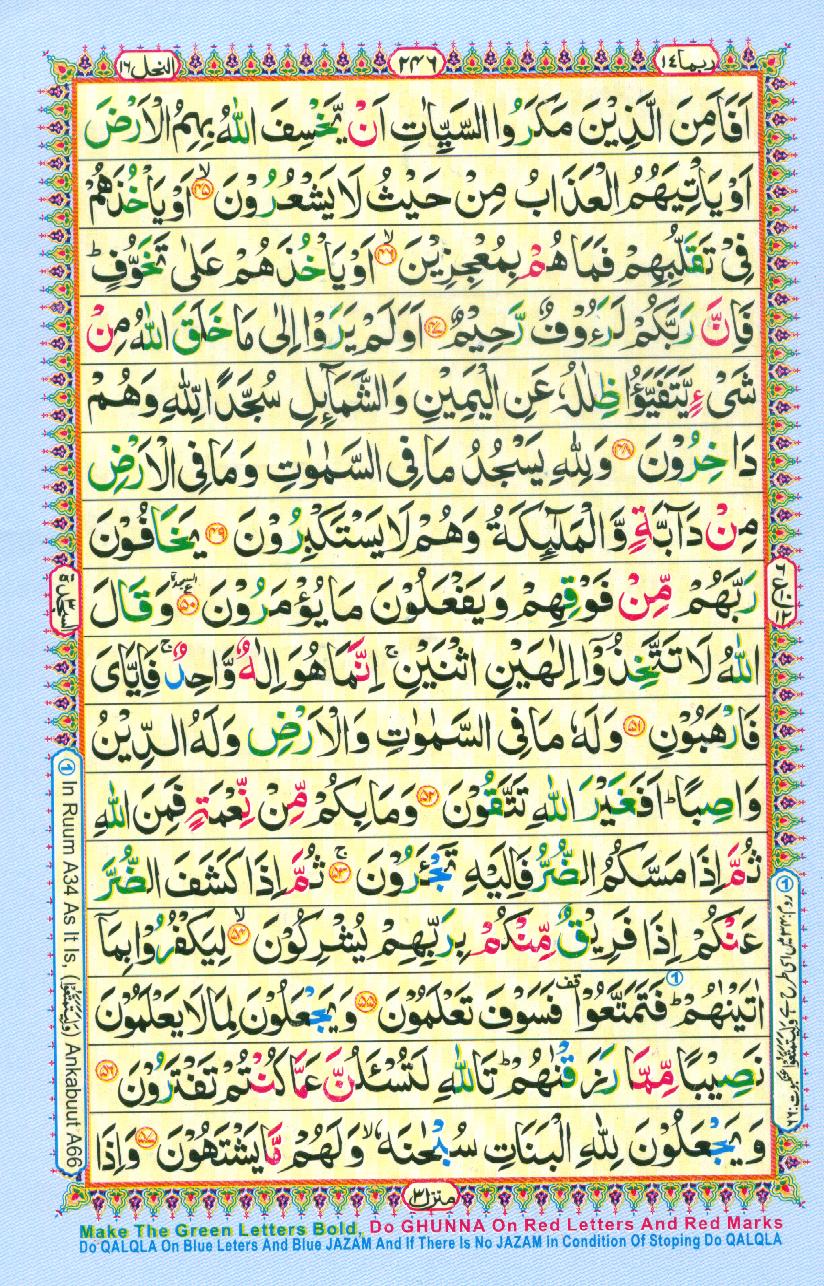 ربما ١٤
٢٤٦
النحل ١٦
اَفَاَمِنَ الَّذِیْنَ مَكَرُوا السَّیِّاٰتِ اَنْ یَّخْسِفَ اللّٰهُ بِهِمُ الْاَرْضَ
اَوْ یَاْتِیَهُمُ الْعَذَابُ مِنْ حَیْثُ لَا یَشْعُرُوْنَ ۙ﴿۴۵﴾ اَوْ یَاْخُذَهُمْ
فِیْ تَقَلُّبِهِمْ فَمَا هُمْ بِمُعْجِزِیْنَ ۙ﴿۴۶﴾ اَوْ یَاْخُذَهُمْ عَلٰی تَخَوُّفٍ ؕ
فَاِنَّ رَبَّكُمْ لَرَءُوْفٌ رَّحِیْمٌ ﴿۴۷﴾ اَوَلَمْ یَرَوْا اِلٰی مَا خَلَقَ اللّٰهُ مِنْ
شَیْءٍ یَّتَفَیَّؤُا ظِلٰلُهٗ عَنِ الْیَمِیْنِ وَالشَّمَآىِٕلِ سُجَّدًا لِّلّٰهِ وَهُمْ
دَاخِرُوْنَ ﴿۴۸﴾ وَلِلّٰهِ یَسْجُدُ مَا فِی السَّمٰوٰتِ وَمَا فِی الْاَرْضِ
مِنْ دَآبَّةٍ وَّالْمَلٰٓىِٕكَةُ وَهُمْ لَا یَسْتَكْبِرُوْنَ ﴿۴۹﴾ یَخَافُوْنَ
رَبَّهُمْ مِّنْ فَوْقِهِمْ وَیَفْعَلُوْنَ مَا یُؤْمَرُوْنَ ۩﴿۵۰﴾ وَقَالَ
اللّٰهُ لَا تَتَّخِذُوْۤا اِلٰهَیْنِ اثْنَیْنِ ۚ اِنَّمَا هُوَ اِلٰهٌ وَّاحِدٌ ۚ فَاِیَّایَ
فَارْهَبُوْنِ ﴿۵۱﴾ وَلَهٗ مَا فِی السَّمٰوٰتِ وَالْاَرْضِ وَلَهُ الدِّیْنُ
وَاصِبًا ؕ اَفَغَیْرَ اللّٰهِ تَتَّقُوْنَ ﴿۵۲﴾ وَمَا بِكُمْ مِّنْ نِّعْمَةٍ فَمِنَ اللّٰهِ
ثُمَّ اِذَا مَسَّكُمُ الضُّرُّ فَاِلَیْهِ تَجْـَٔرُوْنَ ۚ﴿۵۳﴾ ثُمَّ اِذَا كَشَفَ الضُّرَّ
عَنْكُمْ اِذَا فَرِیْقٌ مِّنْكُمْ بِرَبِّهِمْ یُشْرِكُوْنَ ۙ﴿۵۴﴾ لِیَكْفُرُوْا بِمَاۤ
اٰتَیْنٰهُمْ ؕ فَتَمَتَّعُوْا ۫ فَسَوْفَ تَعْلَمُوْنَ ﴿۵۵﴾ وَیَجْعَلُوْنَ لِمَا لَا یَعْلَمُوْنَ
نَصِیْبًا مِّمَّا رَزَقْنٰهُمْ ؕ تَاللّٰهِ لَتُسْـَٔلُنَّ عَمَّا كُنْتُمْ تَفْتَرُوْنَ ﴿۵۶﴾
وَیَجْعَلُوْنَ لِلّٰهِ الْبَنَاتِ سُبْحٰنَهٗ ۙ وَلَهُمْ مَّا یَشْتَهُوْنَ ﴿۵۷﴾ وَاِذَا
منزل ٣
السجدة ٣
① In Ruum A34 As It Is, (وَلِیَتَمَتَّعُوْا) Ankabuut A66
Make The Green Letters Bold, Do GHUNNA On Red Letters And Red Marks
Do QALQLA On Blue Leters And Blue JAZAM And If There Is No JAZAM In Condition Of Stoping Do QALQLA